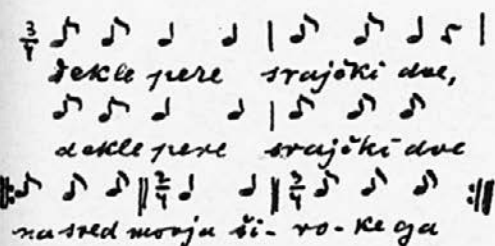 3/4
Dekle pere srajčki dve,
dekle pere srajčki dve
2/4 3/4
na sred morja ši-ro-kega